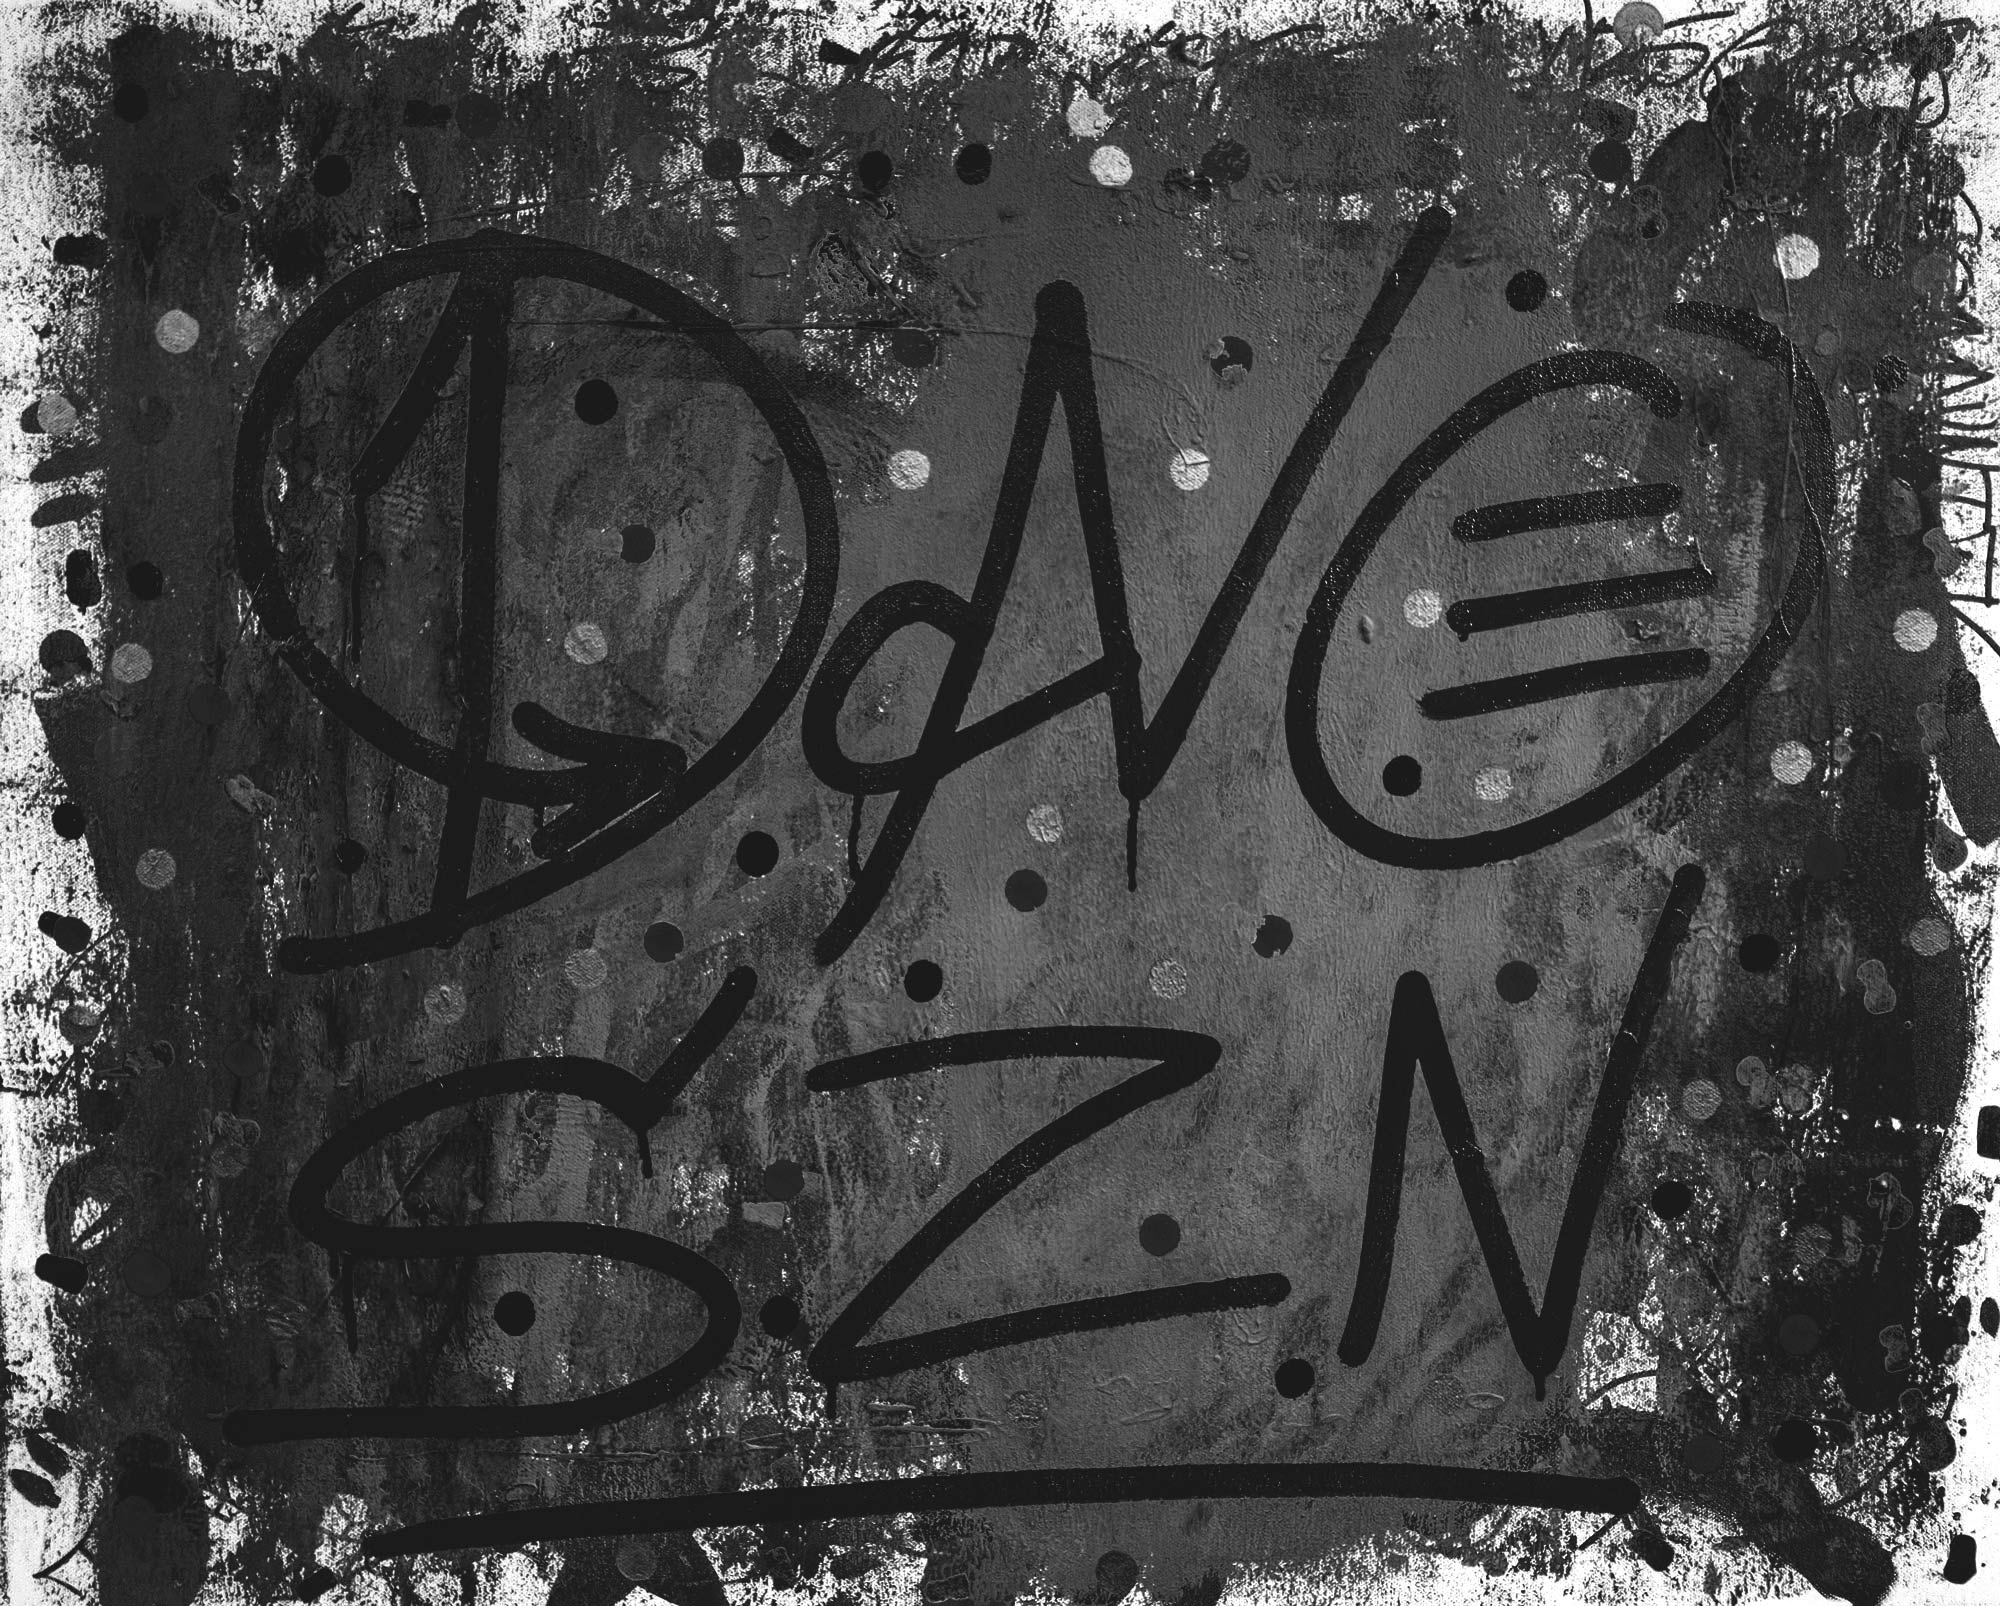 DAVE
SZN